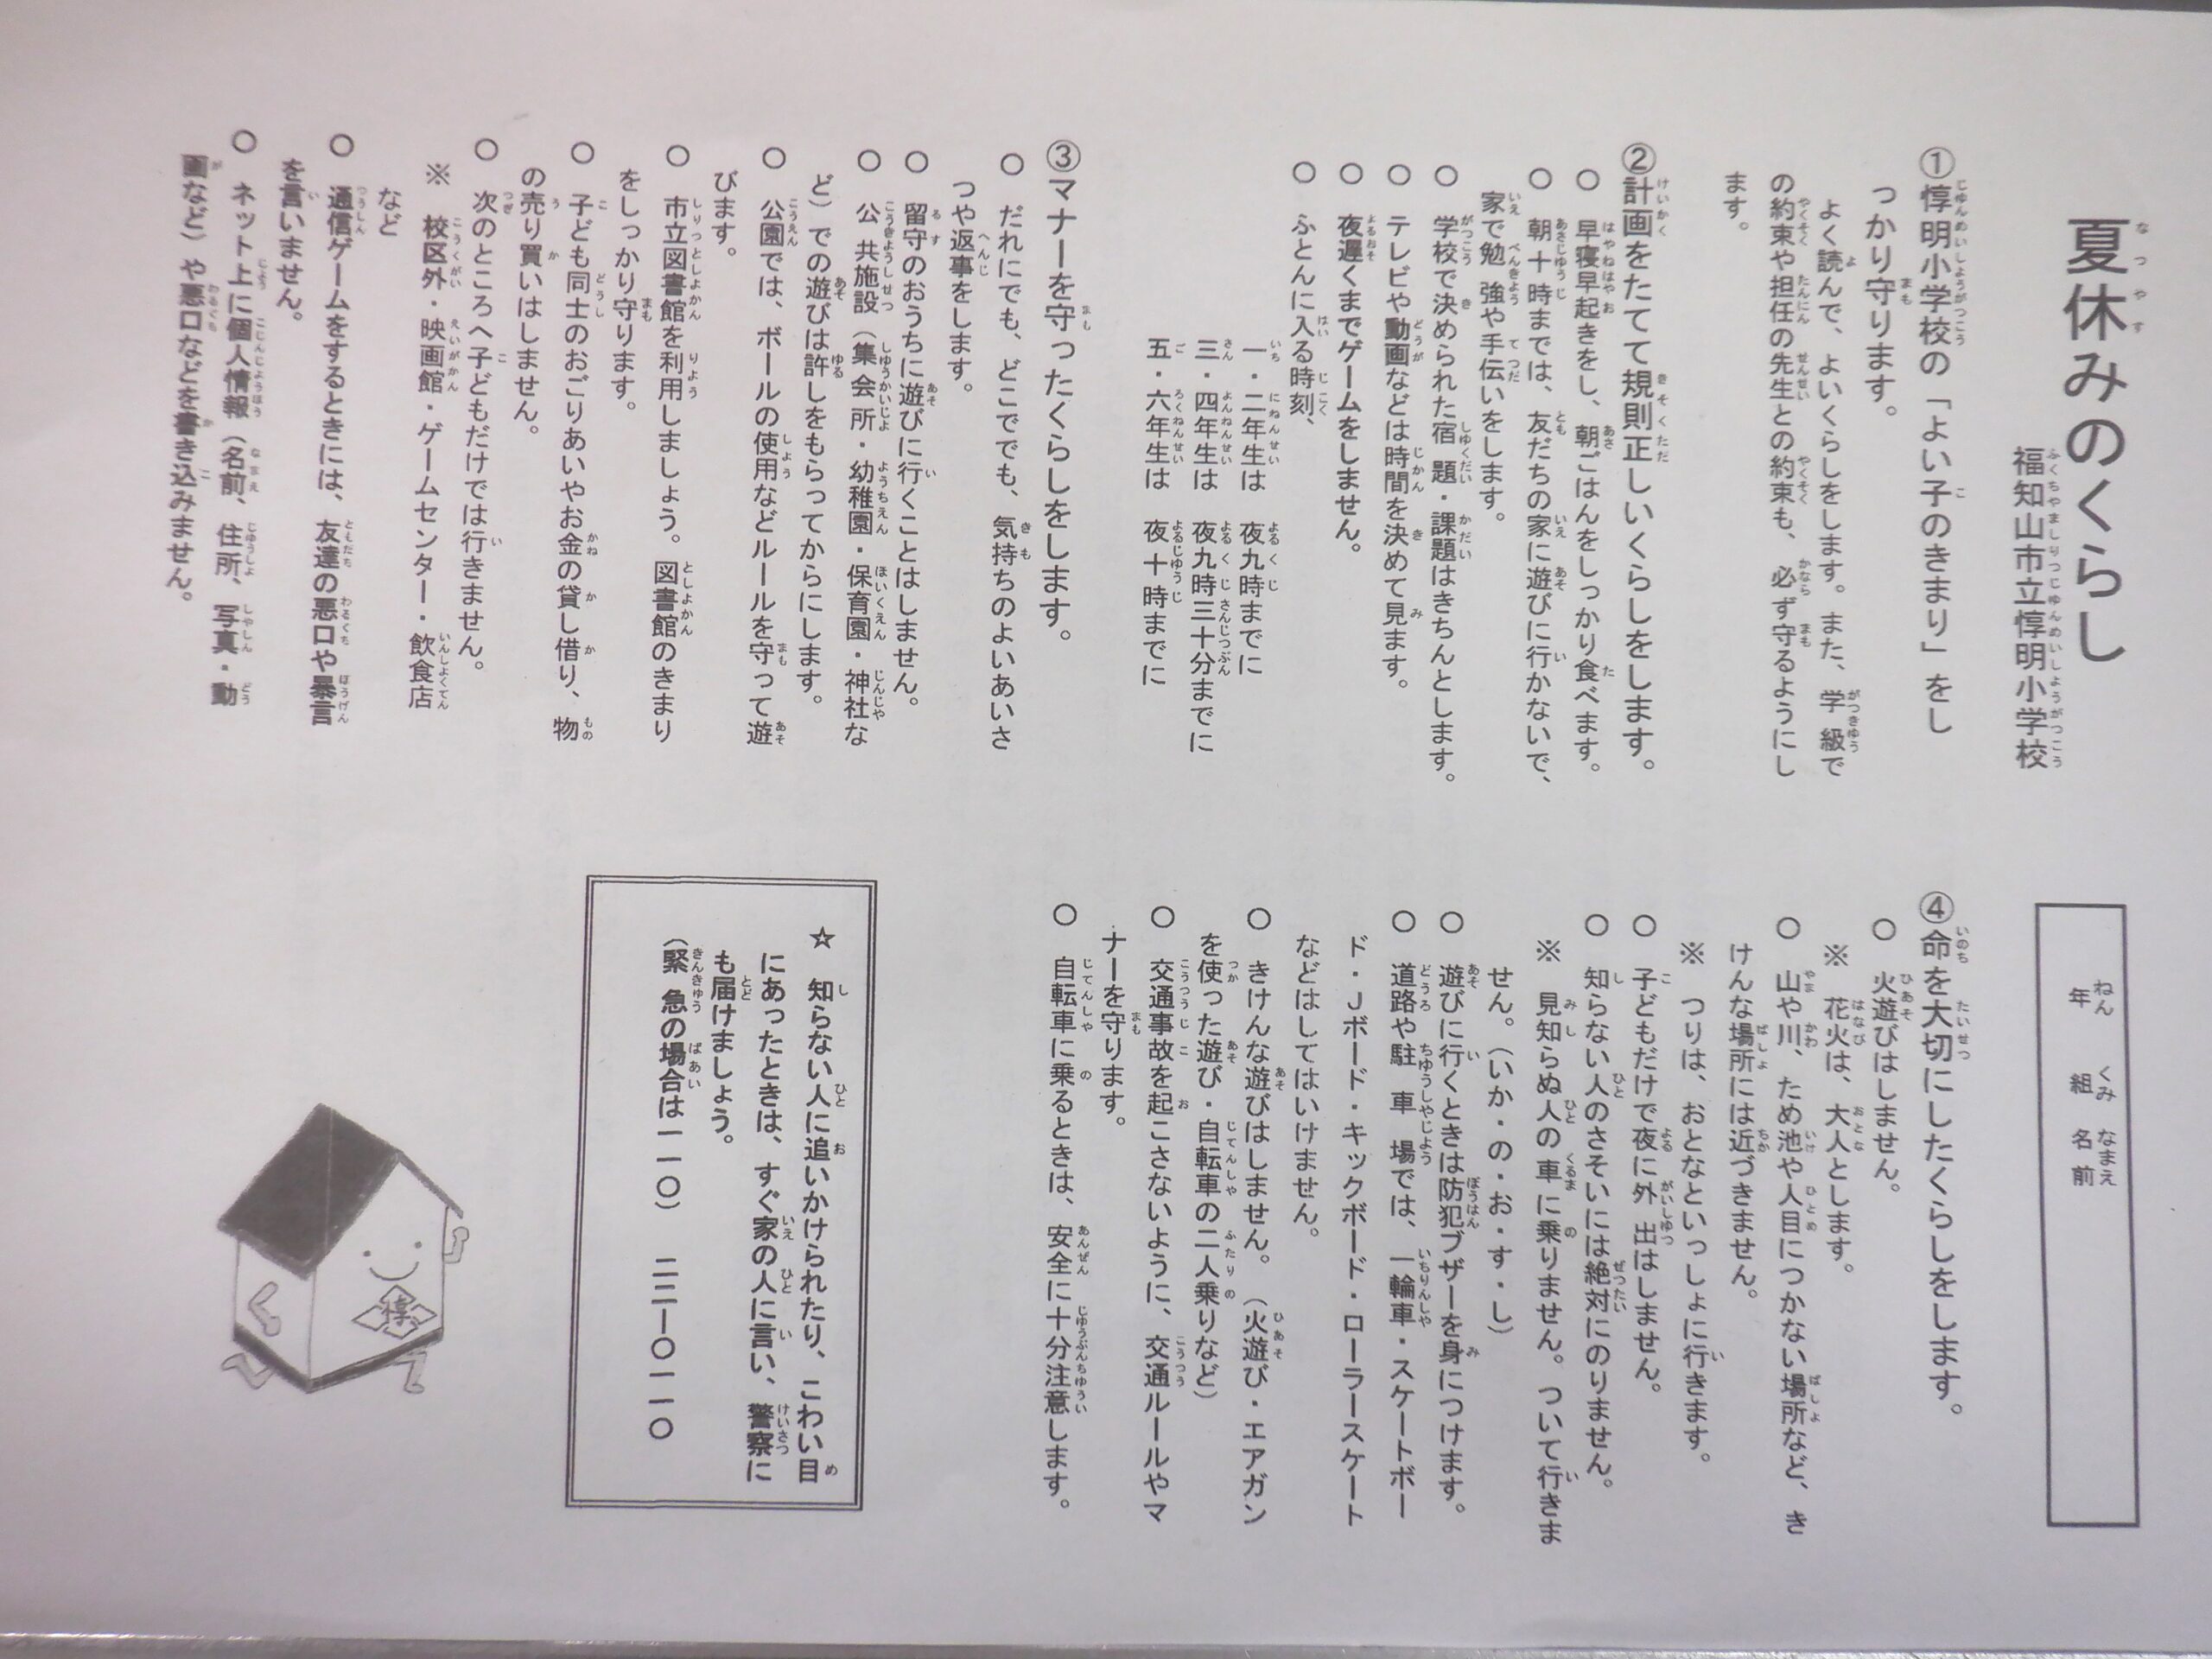 夏休みのくらし
福知山市立惇明小学校
①惇明小学校の「よい子のきまり」をし
っかり守ります。
よく読んで、よいくらしをします。また、学級で
の約束や担任の先生との約束も、必ず守るようにし
ます。
②計画をたてて規則正しいくらしをします。
○ 早寝早起きをし、朝ごはんをしっかり食べます。
○ 朝十時までは、友だちの家に遊びに行かないで、
家で勉強や手伝いをします。
○ 学校で決められた宿題・課題はきちんとします。
○ テレビや動画などは時間を決めて見ます。
○ 夜遅くまでゲームをしません。
○ ふとんに入る時刻、
一・二年生は 夜九時までに
三・四年生は 夜九時三十分までに
五・六年生は 夜十時までに
③マナーを守ったくらしをします。
○ だれにでも、どこででも、気持ちのよいあいさ
つや返事をします。
○ 留守のおうちに遊びに行くことはしません。
○ 公共施設（集会所・幼稚園・保育園・神社な
ど）での遊びは許しをもらってからにします。
○ 公園では、ボールの使用などルールを守って遊
びます。
○ 市立図書館を利用しましょう。図書館のきまり
をしっかり守ります。
○ 子ども同士のおごりあいやお金の貸し借り、物
の売り買いはしません。
○ 次のところへ子どもだけでは行きません。
※ 校区外・映画館・ゲームセンター・飲食店
など
○ 通信ゲームをするときには、友達の悪口や暴言
を言いません。
○ ネット上に個人情報（名前、住所、写真・動
画など）や悪口などを書き込みません。
年 組 名前
④命を大切にしたくらしをします。
○ 火遊びはしません。
※ 花火は、大人とします。
○ 山や川、ため池や人目につかない場所など、き
けんな場所には近づきません。
※ つりは、おとなといっしょに行きます。
○ 子どもだけで夜に外出はしません。
○ 知らない人のさそいには絶対にのりません。
※ 見知らぬ人の車に乗りません。ついて行きま
せん。（いか・の・お・す・し）
○ 遊びに行くときは防犯ブザーを身につけます。
○ 道路や駐車場では、一輪車・スケートボー
ド・Jボード・キックボード・ローラースケート
などはしてはいけません。
○ きけんな遊びはしません。（火遊び・エアガン
を使った遊び・自転車の二人乗りなど）
○ 交通事故を起こさないように、交通ルールやマ
ナーを守ります。
○ 自転車に乗るときは、安全に十分注意します。
☆ 知らない人に追いかけられたり、こわい目
にあったときは、すぐ家の人に言い、警察に
も届けましょう。
（緊急の場合は一一〇） 二二ー〇一一〇
惇